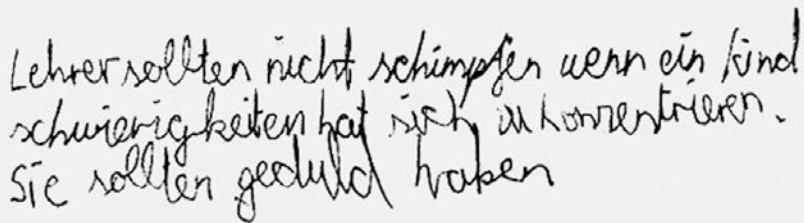 Lehrer sollten nicht schimpfen wenn ein kind
schwierigkeiten hat sich zu konzentrieren.
Sie sollten geduld haben